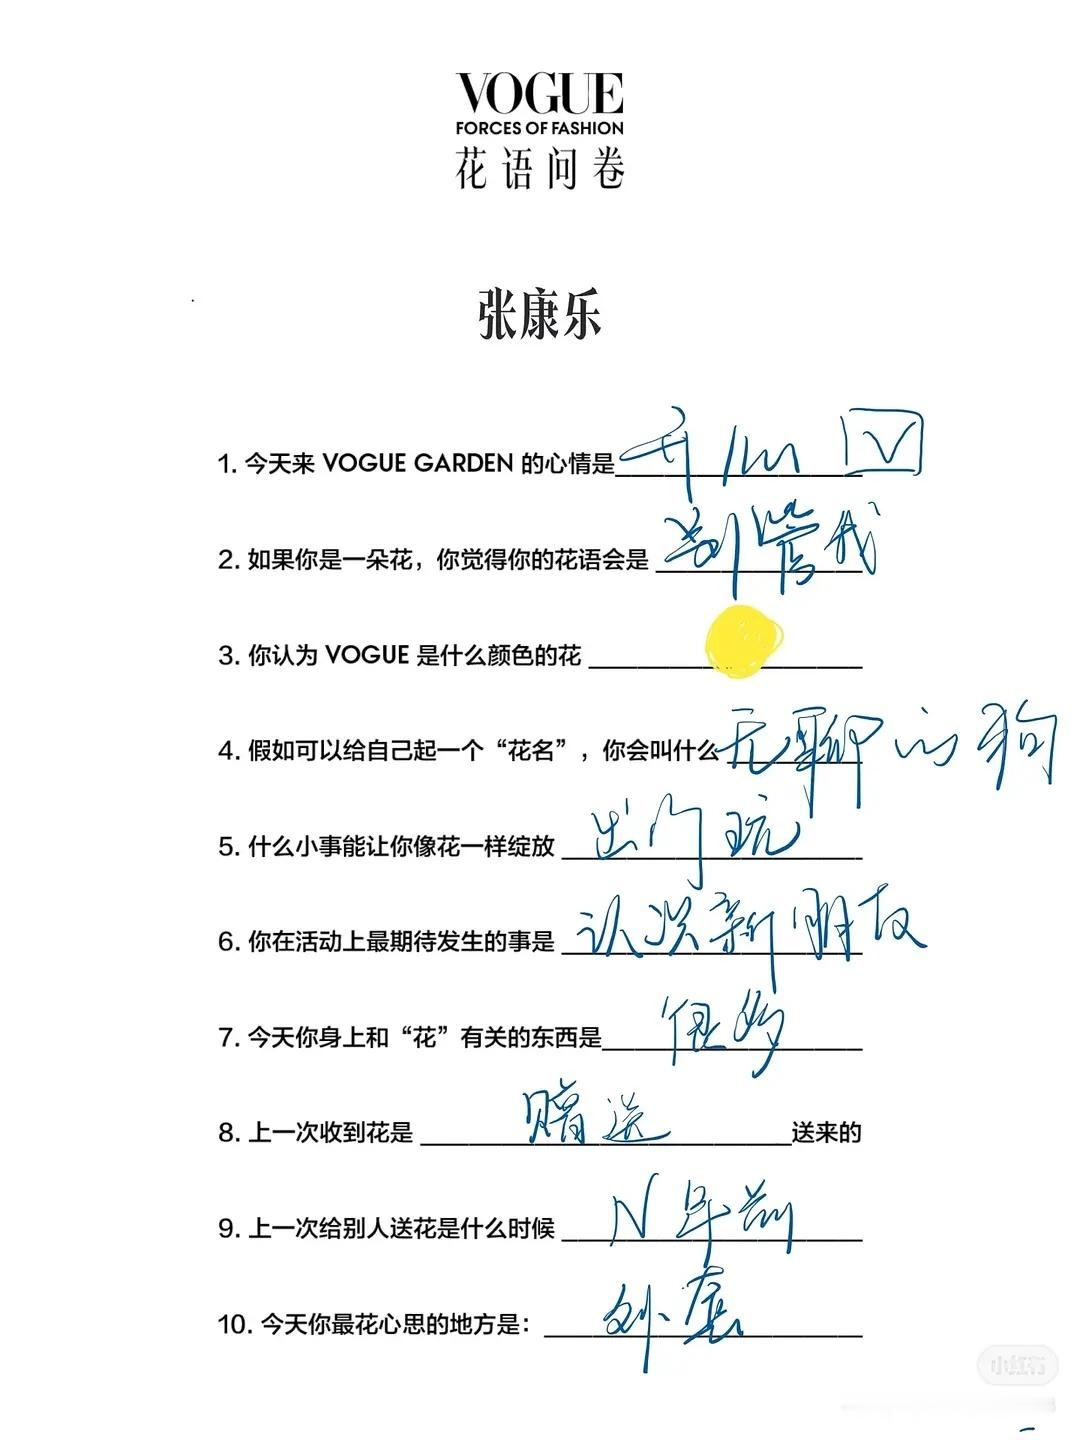 VOGUE
FORCES OF FASHION
花语问卷
张康乐
1. 今天来 VOGUE GARDEN 的心情是 开心
2. 如果你是一朵花，你觉得你的花语会是 别管我
3. 你认为 VOGUE 是什么颜色的花
4. 假如可以给自己起一个“花名”，你会叫什么 无聊的狗
5. 什么小事能让你像花一样绽放 出门玩
6. 你在活动上最期待发生的事是 认识新朋友
7. 今天你身上和“花”有关的东西是 很多
8. 上一次收到花是 赠送 送来的
9. 上一次给别人送花是什么时候 N年前
10. 今天你最花心思的地方是： 外套
小红书